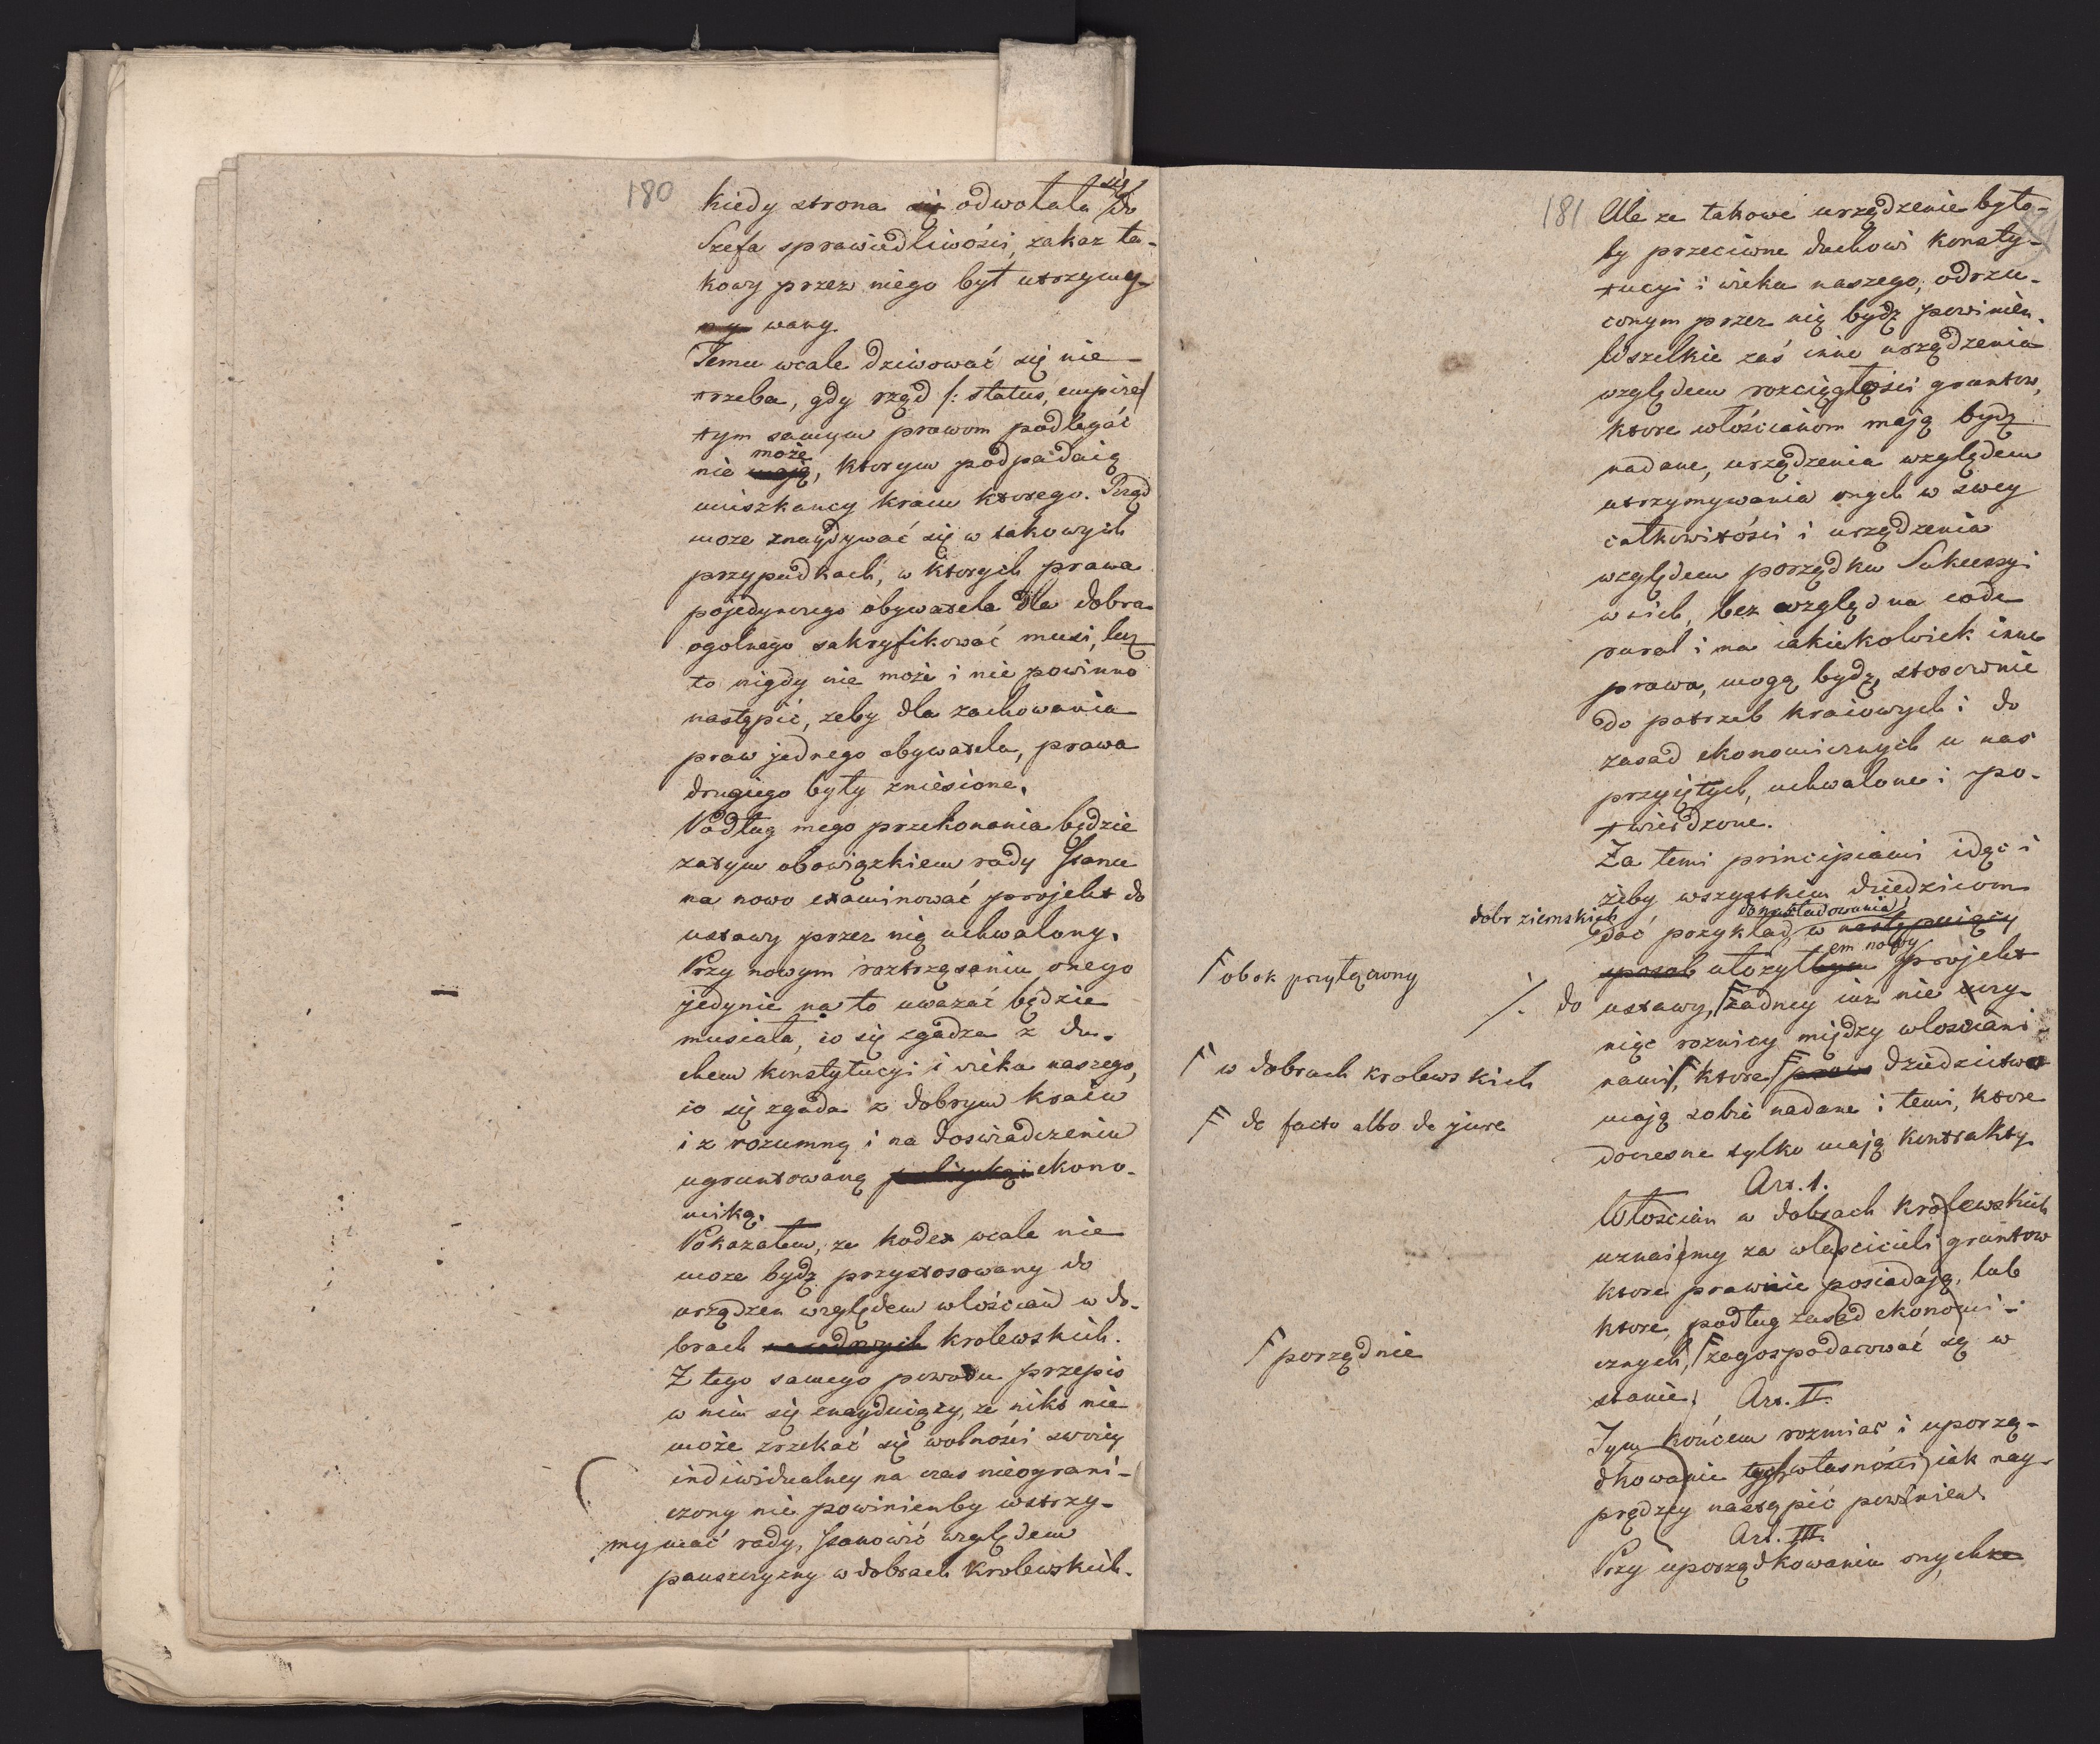 180
kiedy strona się odwołała się do
Szefa sprawiedliwości, zakaz ta-
kowy przez niego był utrzymy-
ny wany.
Temu wcale dziwować się nie
trzeba, gdy rząd /: status, empire/
tym samym prawom podlegać
może
nie mają, ktorym podpadaią
mieszkancy kraiu ktorego. Rząd
moze znaydywać się w takowych
przypadkach, w ktorych prawa
pojedynczego obywatela dla dobra
ogolnego sakryfikować musi, lecz
to nigdy nie może i nie powinno
nastąpić, zeby dla zachowania
praw jednego obywatela, prawa
drugiego były zniesione.
Podług mego przekonania będzie
zatym obowiązkiem rady stanu
na nowo examinować projekt do
ustawy przez nią uchwalony.
Przy nowym roztrząsaniu onego
jedynie na to uważać będzie
musiała, co się zgadza z du-
chem konstytucyi i wieka naszego,
co się zgadza z dobrym kraiu
i z rozumną i na doświadczeniu
ugruntowaną polityką i ekono-
miką.
Pokazałem, ze kodex wcale nie
moze bydz przystosowany do
urządzen względem włościan w do-
brach krolewskich.
Z tego samego powodu przepis
w nim się znayduiący, ze nikt nie
może zrzekać się wolności swoiey
indiwidualney na czas nieograni-
czony nie powinienby wstrzy-
mywać rady, stanowić względem
pańszczyzny w dobrach Krolewskich.
181
Ale ze takowe urządzenie było-
by przeciwne duchowi konsty-
tucyi i wieka naszego, odrzu-
conym przez nią bydź powinien.
Wszelkie zaś inne urządzenia
względem rozciągłości gruntow,
ktore włościanom mają bydź
nadane, urządzenia względem
utrzymywania onych w swey
całkowitości i urządzenia
względem porządku Sukcessyi
w nich, bez względ na code
rural i na iakiekolwiek inne
prawa, mogą bydź, stosownie
do potrzeb kraiowych i do
zasad ekonomicznych u nas
przyiętych, uchwalone i po-
twierdzone.
Za temi principiami idąc i
żeby wszystkim dziedzicom
dobr ziemskich
do naśladowania
dać przykład, w następuiący
em nowy
sposob ułożyłbym projekt
F obok przyłączony
/. do ustawy, F żadney iuz nie czy-
niąc roznicy między wlościani-
F w dobrach krolewskich
nami F, ktore F prawo dziedzictwa
F de facto albo de jure
mają sobie nadane i temi, ktore
doczesne tylko mają kontrakty
Art. 1.
Włościan w dobrach krolewskich
uznaiemy za właścicieli gruntow
ktore prawnie posiadają, lub
ktore, podług zasad ekonomi-
F porządnie
cznych, F zagospodarować są w
stanie. Art. II.
Tym końcem rozmiar i uporzą-
dkowanie tych własności iak nay-
prędzey nastąpić powinien.
Art. III.
Przy uporządkowaniu onych ze